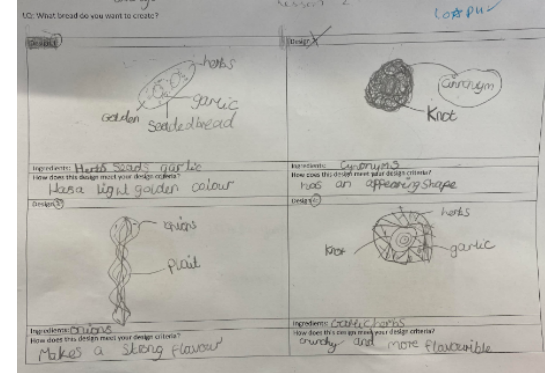 Lesson 2
LO: What bread do you want to create?
herbs
garlic
Golden
Seaded bread
Ingredients: Herbs Seads garlic
How does this design meet your design criteria?
Has a light golden colour
Design
Cynonym
Knot
Ingredients: Cynonyms
How does this design meet your design criteria?
has an appearing shape
Design 3
onions
Plait
Ingredients: onions
How does this design meet your design criteria?
Makes a strong flavour
Design 4:
herbs
Knot
garlic
Ingredients: Garlic herbs
How does this design meet your design criteria?
crunchy and more flavourible